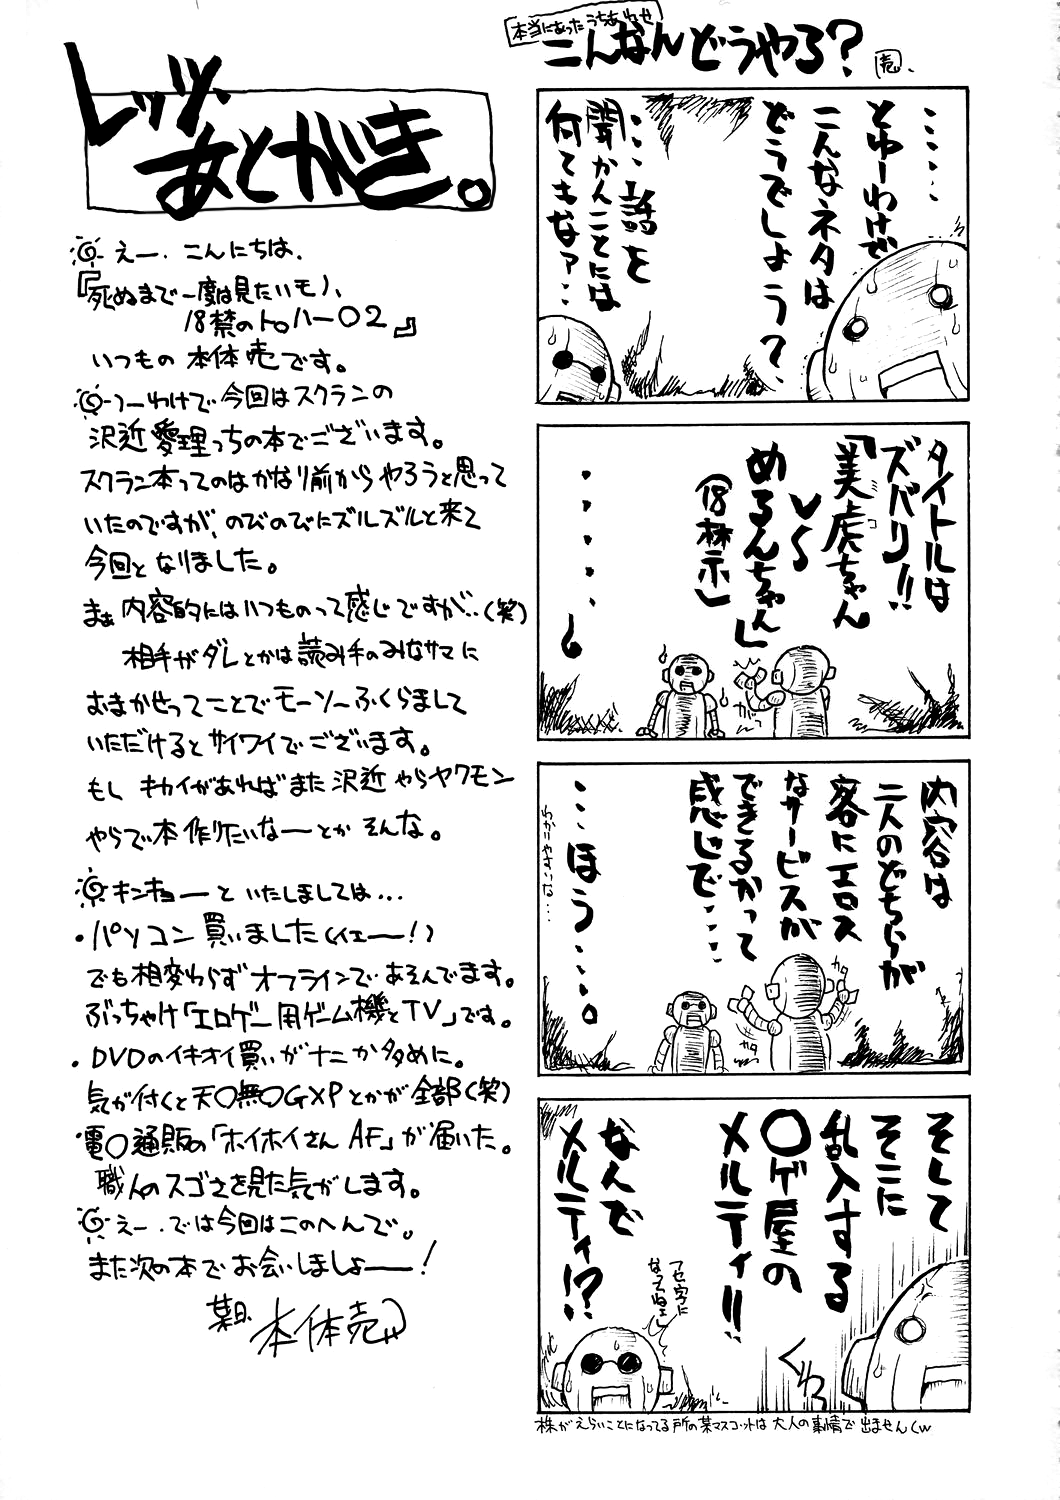 レッツ、
あとがき。
えー、こんにちは、
『死ぬまで一度は見たいモノ、
18禁のトロハー〇2』
いつもの本体売です。
つーわけで今回はスクランの
沢近愛理っちの本でございます。
スクラン本ってのはかなり前からやろうと思って
いたのですが、のびのびにズルズルと来て
今回となりました。
まぁ内容的にはいつものって感じですが‥(笑)
相手がダレとかは読み手のみなサマに
おまかせってことでモーソーふくらまして
いただけるとサイワイでございます。
もし キカイがあればまた沢近やらヤクモン
やらで本作りたいなーとかそんな。
キンキョーといたしましては…
・パソコン買いました(イエー!)
でも相変わらずオフラインであそんでます。
ぶっちゃけ「エロゲー用ゲーム機とTV」です。
・DVDのイキオイ買いがナニか多めに。
気が付くと天〇無〇GXPとかが全部(笑)
電〇通販の「ホイホイさんAF」が届いた。
職人のスゴさを見た気がします。
えー、では今回はこのへんで。
また次の本でお会いしましょー!
某日、本体売
本当にあったうちあわせ
こんなんどうやろ?
売、
……
とゆーわけで
こんなネタは
どうでしょう?
…話を
聞かんことには
何てもなァ…
タイトルは
ズバリ!!
「美虎ちゃん
コ
VS
めるんちゃん」
(18禁)
・・・・・・
ガッ
内容は
二人のどちらが
客にエロス
なサービスが
できるかって
感じで…
…ほう…。
わかりやすいな…
カタ
カタ
そして
そこに
乱入する
〇ゲ屋の
メルティ!!
なんで
メルティ!?
フセ字に
なってねェ
ぐわっ
株がえらいことになってる所の某マスコットは大人の事情で出ませんくw